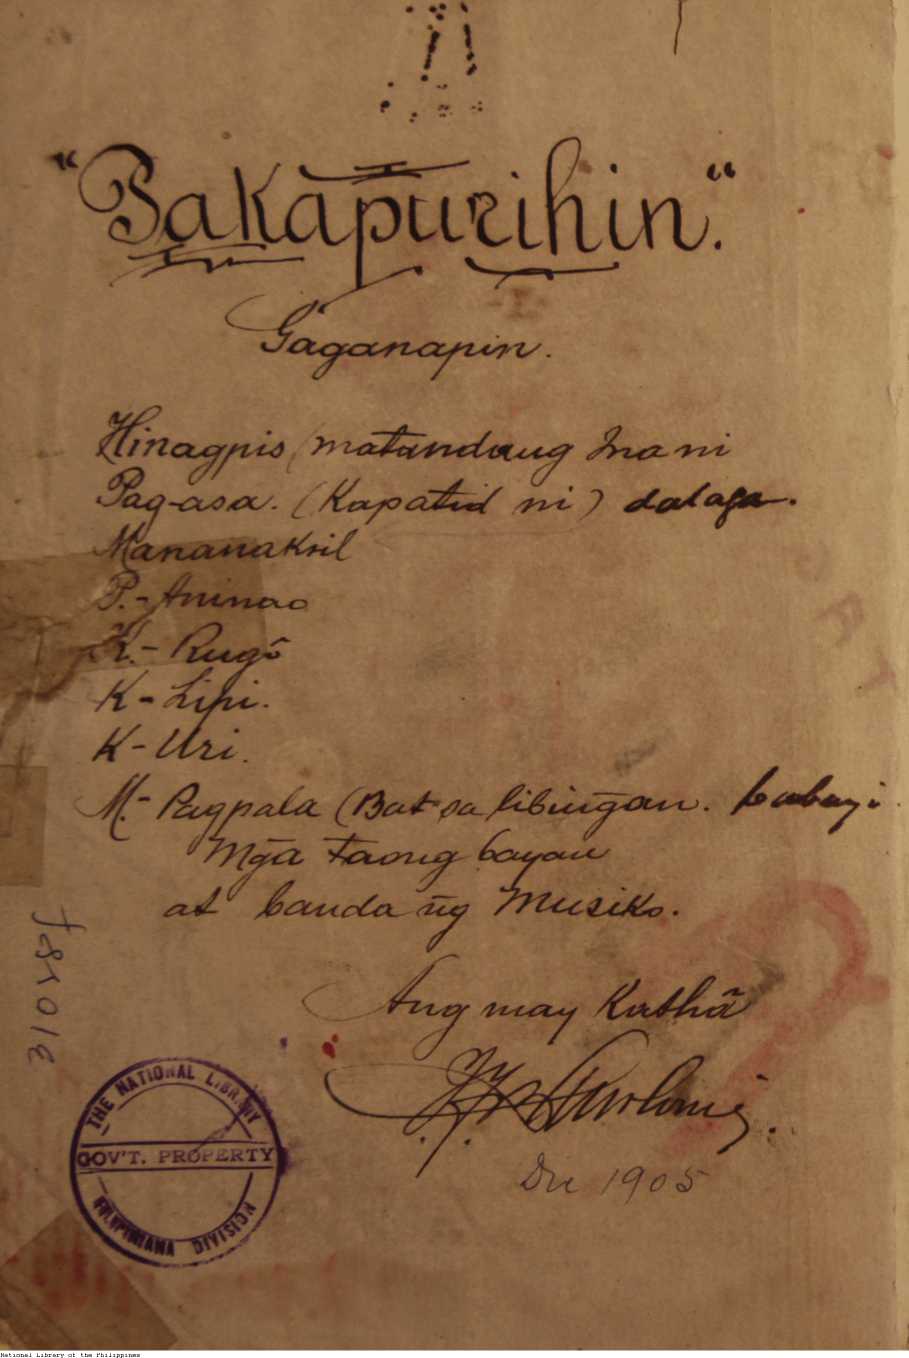 "Pakapurihin".
Gaganapin.
Hinagpis (matandang Ina ni
Pag-asa. (Kapatid ni) dalaga.
Mananaksil
P.- Aninao
K.- Rugō
K - Lipi.
K - Uri.
M.- Pagpala (Bat sa libing̃an. babayi.
Mg̃a taong bayan
at banda n͠g Musiko.
Ang may Kathā
1905
f81013
THE NATIONAL LIBRARY
GOV'T. PROPERTY
FILIPINIANA DIVISION
National Library of the Philippines